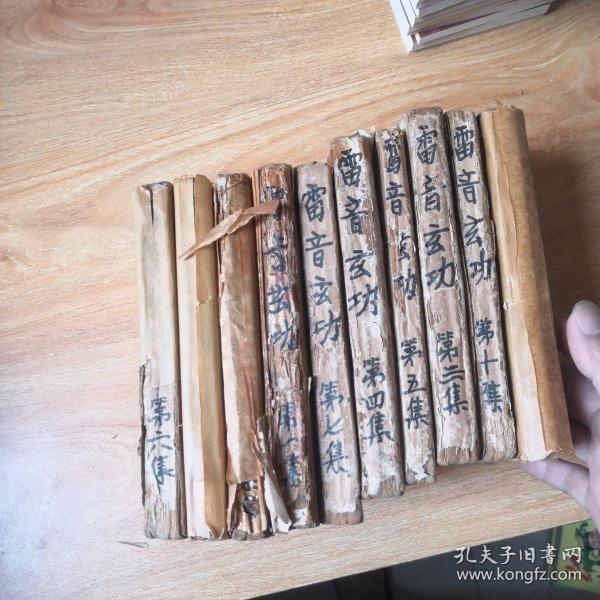 第六集
雷音玄功 第一集
雷音玄功 第七集
雷音玄功 第四集
雷音玄功 第五集
雷音玄功 第二集
雷音玄功 第十集
孔夫子旧书网
www.kongfz.com